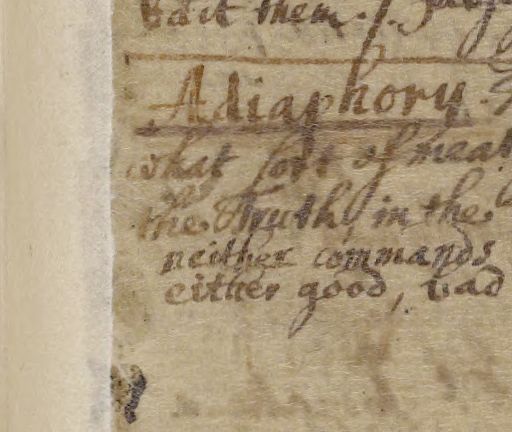 them.
Adiaphory.
what sort of meat
the Truth, in the
neither commands
either good, bad